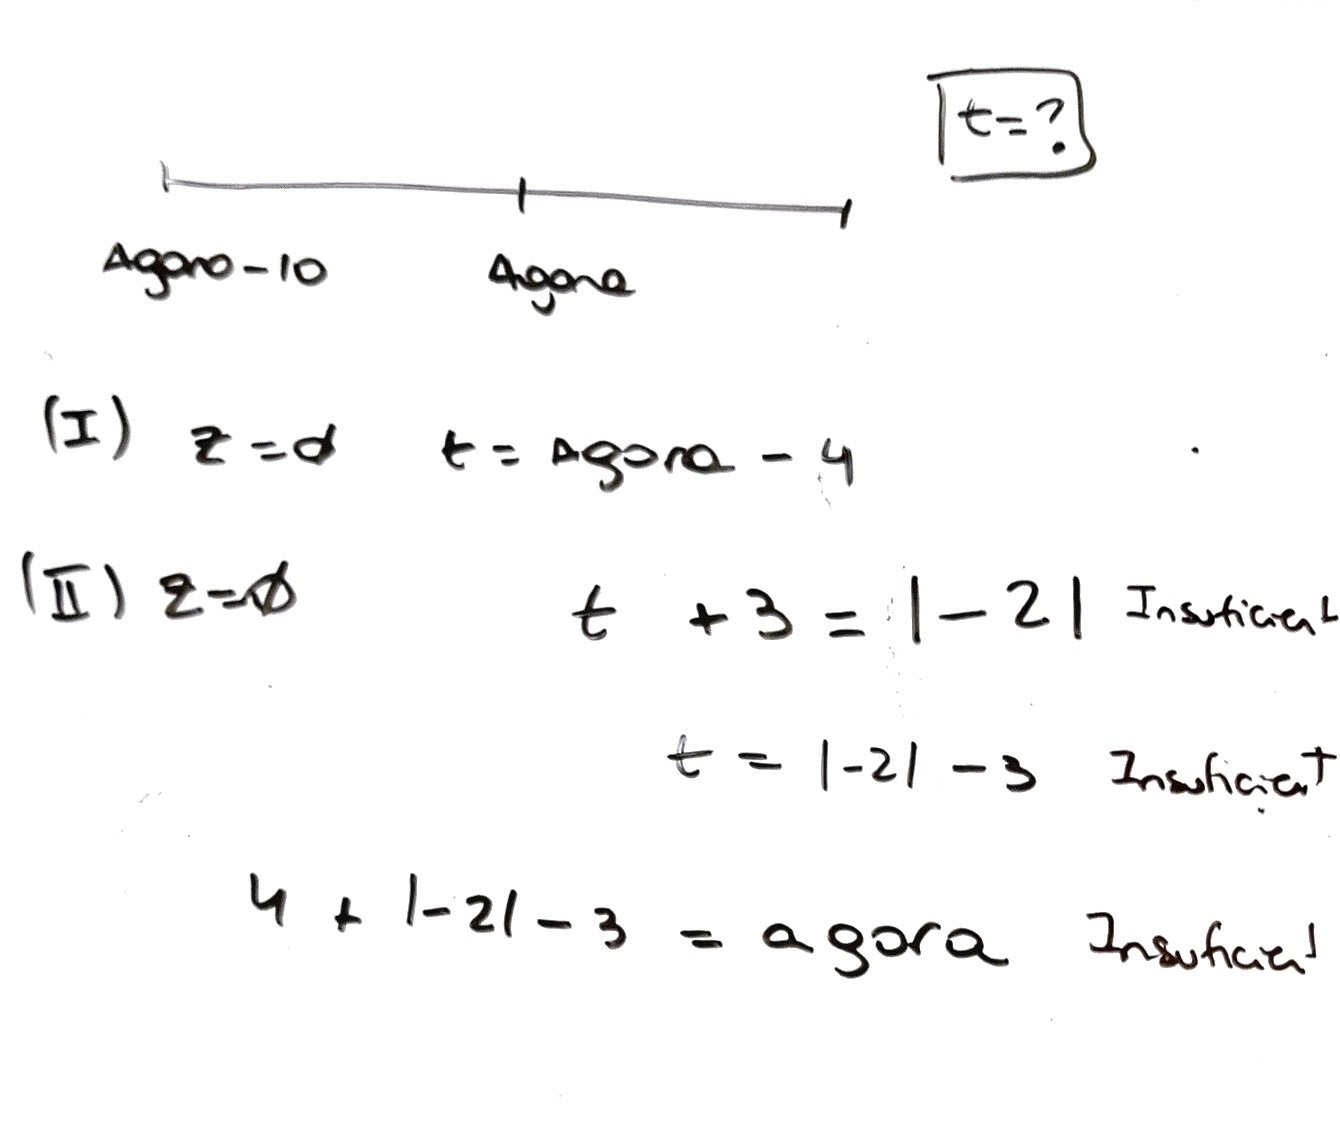 t=?
Agora-10 Agora
(I) z=0 t= Agora - 4
(II) z=0 t +3 = |-2| Insuficient
t = |-2| -3 Insuficient
4 + |-2| -3 = agora Insuficient